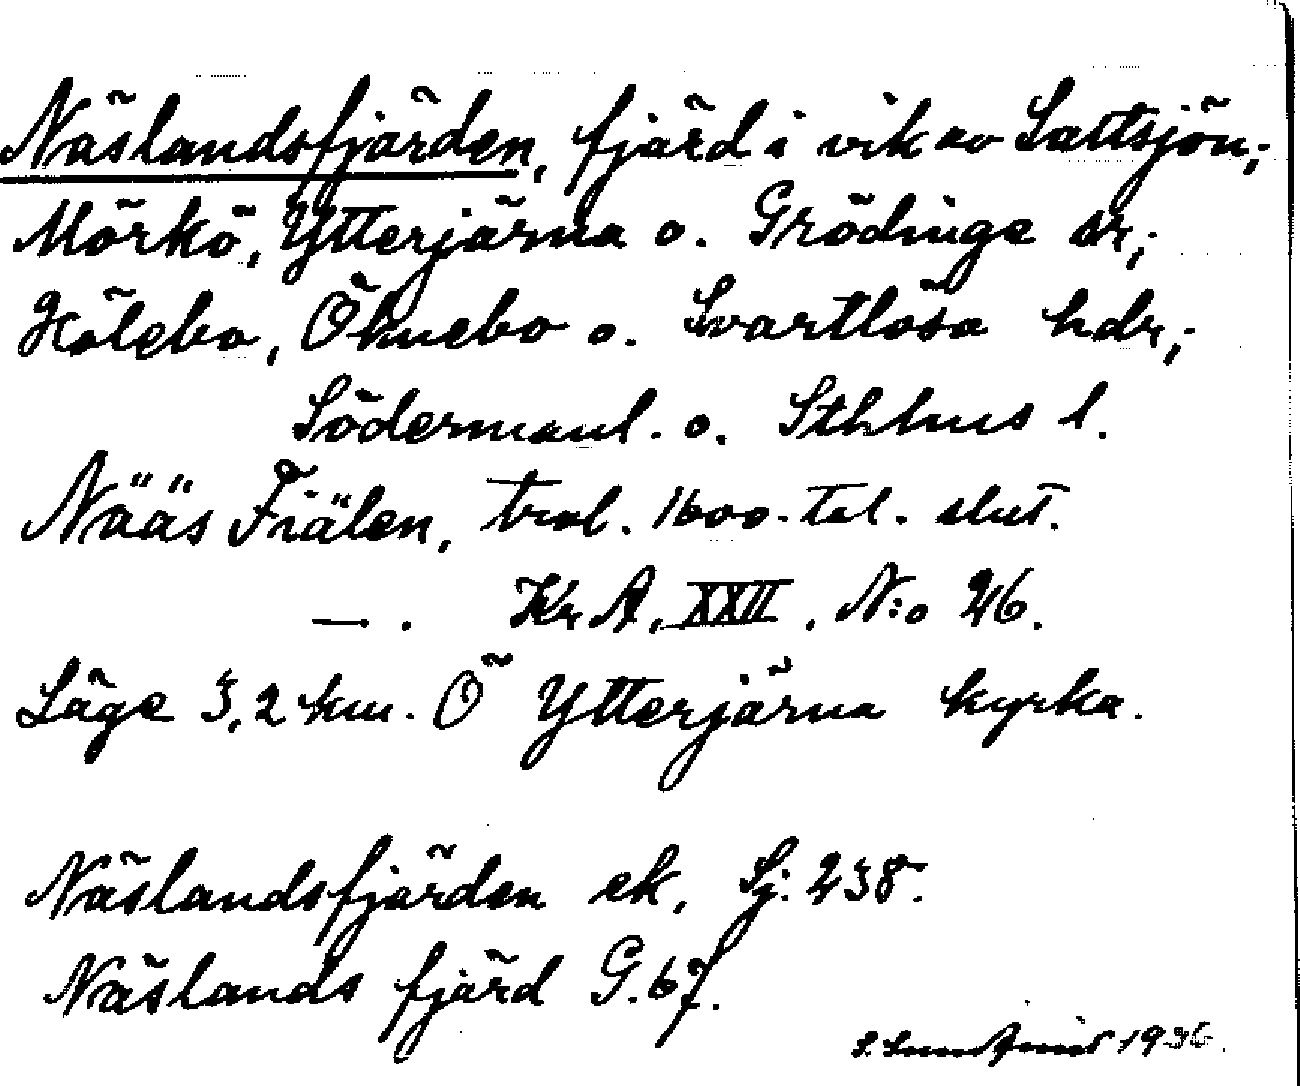 Näslandsfjärden, fjärd i vik av Saltsjön;
Mörkö, Ytterjärna o. Grödinge snr;
Hölebo, Öknebo o. Svartlösa hdr;
Södermanl. o. Sthlms l.
Nääs Fiälen, trol. 1600-tal. slut.
— . Kr A. XXII. N:o 26.
Läge 3,2 km. Ö Ytterjärna kyrka.
Näslandsfjärden ek, Sj. 238.
Näslands fjärd G. 67.
S. 1936.